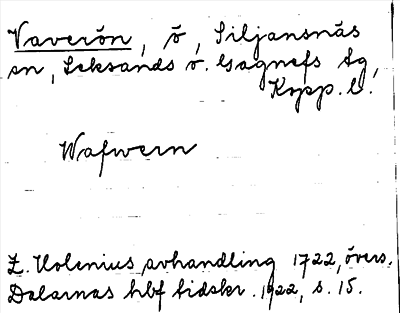 Vaverön, ö, Siljansnäs
sn, Leksands o. Gagnefs tg,
Kopp. l.
Wafwern
Z. Holenius avhandling 1722, övers.
Dalarnas hbf tidskr. 1922, s. 15.